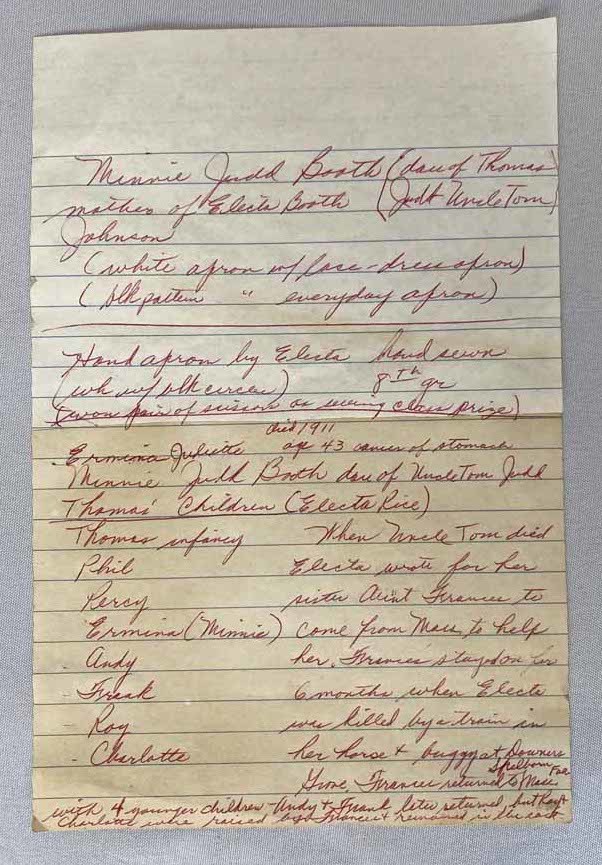 Minnie Judd Booth (dau of Thomas
mother of Electa Booth (Judd Uncle Tom)
Johnson
(white apron w/ lace - dress apron)
(blk pattern " everyday apron)
Hand apron by Electa hand sewn
(wh w/ blk circles) 8th gr
(won pair of scissors as sewing class prize)
died 1911
Ermina Juliette age 43 cancer of stomach
Minnie Judd Booth dau of Uncle Tom Judd
Thomas' Children (Electa Rice)
Thomas infancy When Uncle Tom died
Phil Electa wrote for her
Percy sister Aunt Frances to
Ermina (Minnie) come from Mass. to help
- Andy her. Frances stayed on for
- Frank 6 months when Electa
- Roy was killed by a train in
- Charlotte her horse + buggy at Downers
Grove. Frances returned to Mass
with 4 younger children - Andy + Frank later returned, but Roy +
Charlotte were raised by Frances + remained in the east.